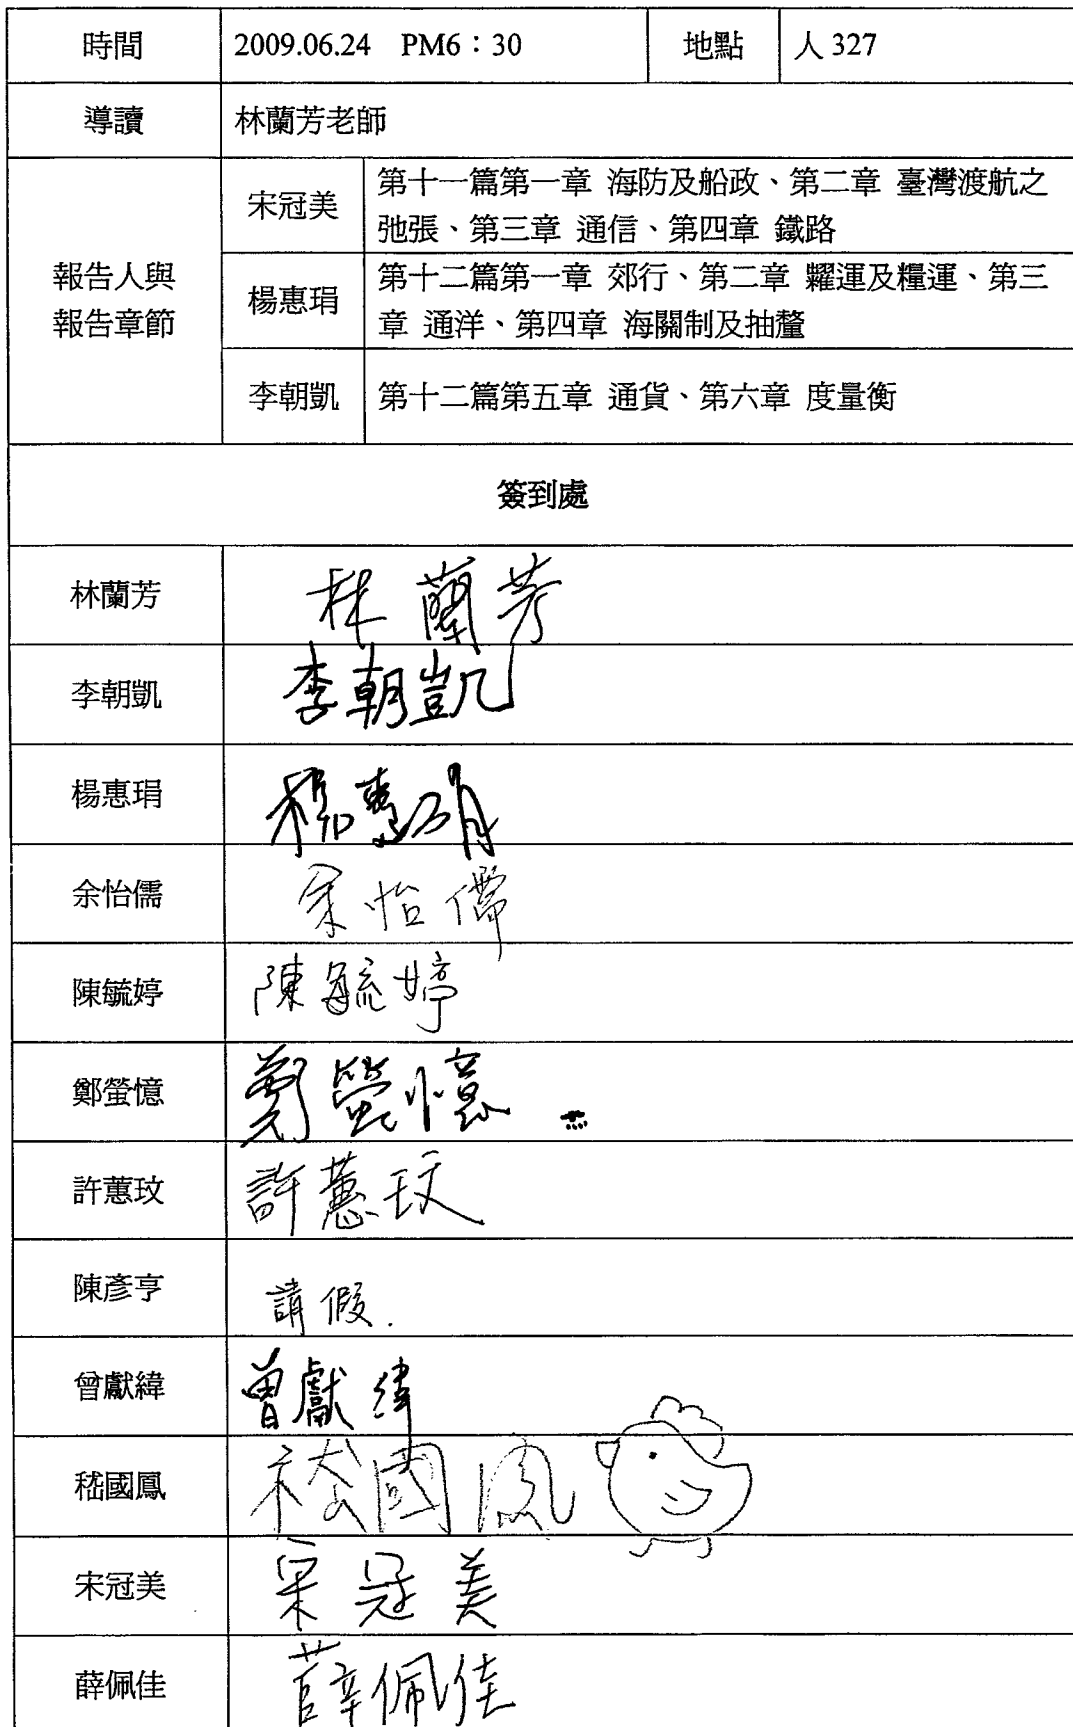 時間 2009.06.24 PM6：30 地點 人 327
導讀 林蘭芳老師
報告人與
報告章節
宋冠美 第十一篇第一章 海防及船政、第二章 臺灣渡航之
弛張、第三章 通信、第四章 鐵路
楊惠琄 第十二篇第一章 郊行、第二章 糶運及糧運、第三
章 通洋、第四章 海關制及抽釐
李朝凱 第十二篇第五章 通貨、第六章 度量衡
簽到處
林蘭芳 林蘭芳
李朝凱 李朝凱
楊惠琄 楊惠琄
余怡儒 余怡儒
陳毓婷 陳毓婷
鄭螢憶 鄭螢憶
許蕙玟 許蕙玟
陳彥亨 請假.
曾獻緯 曾獻緯
嵇國鳳 嵇國鳳
宋冠美 宋冠美
薛佩佳 薛佩佳